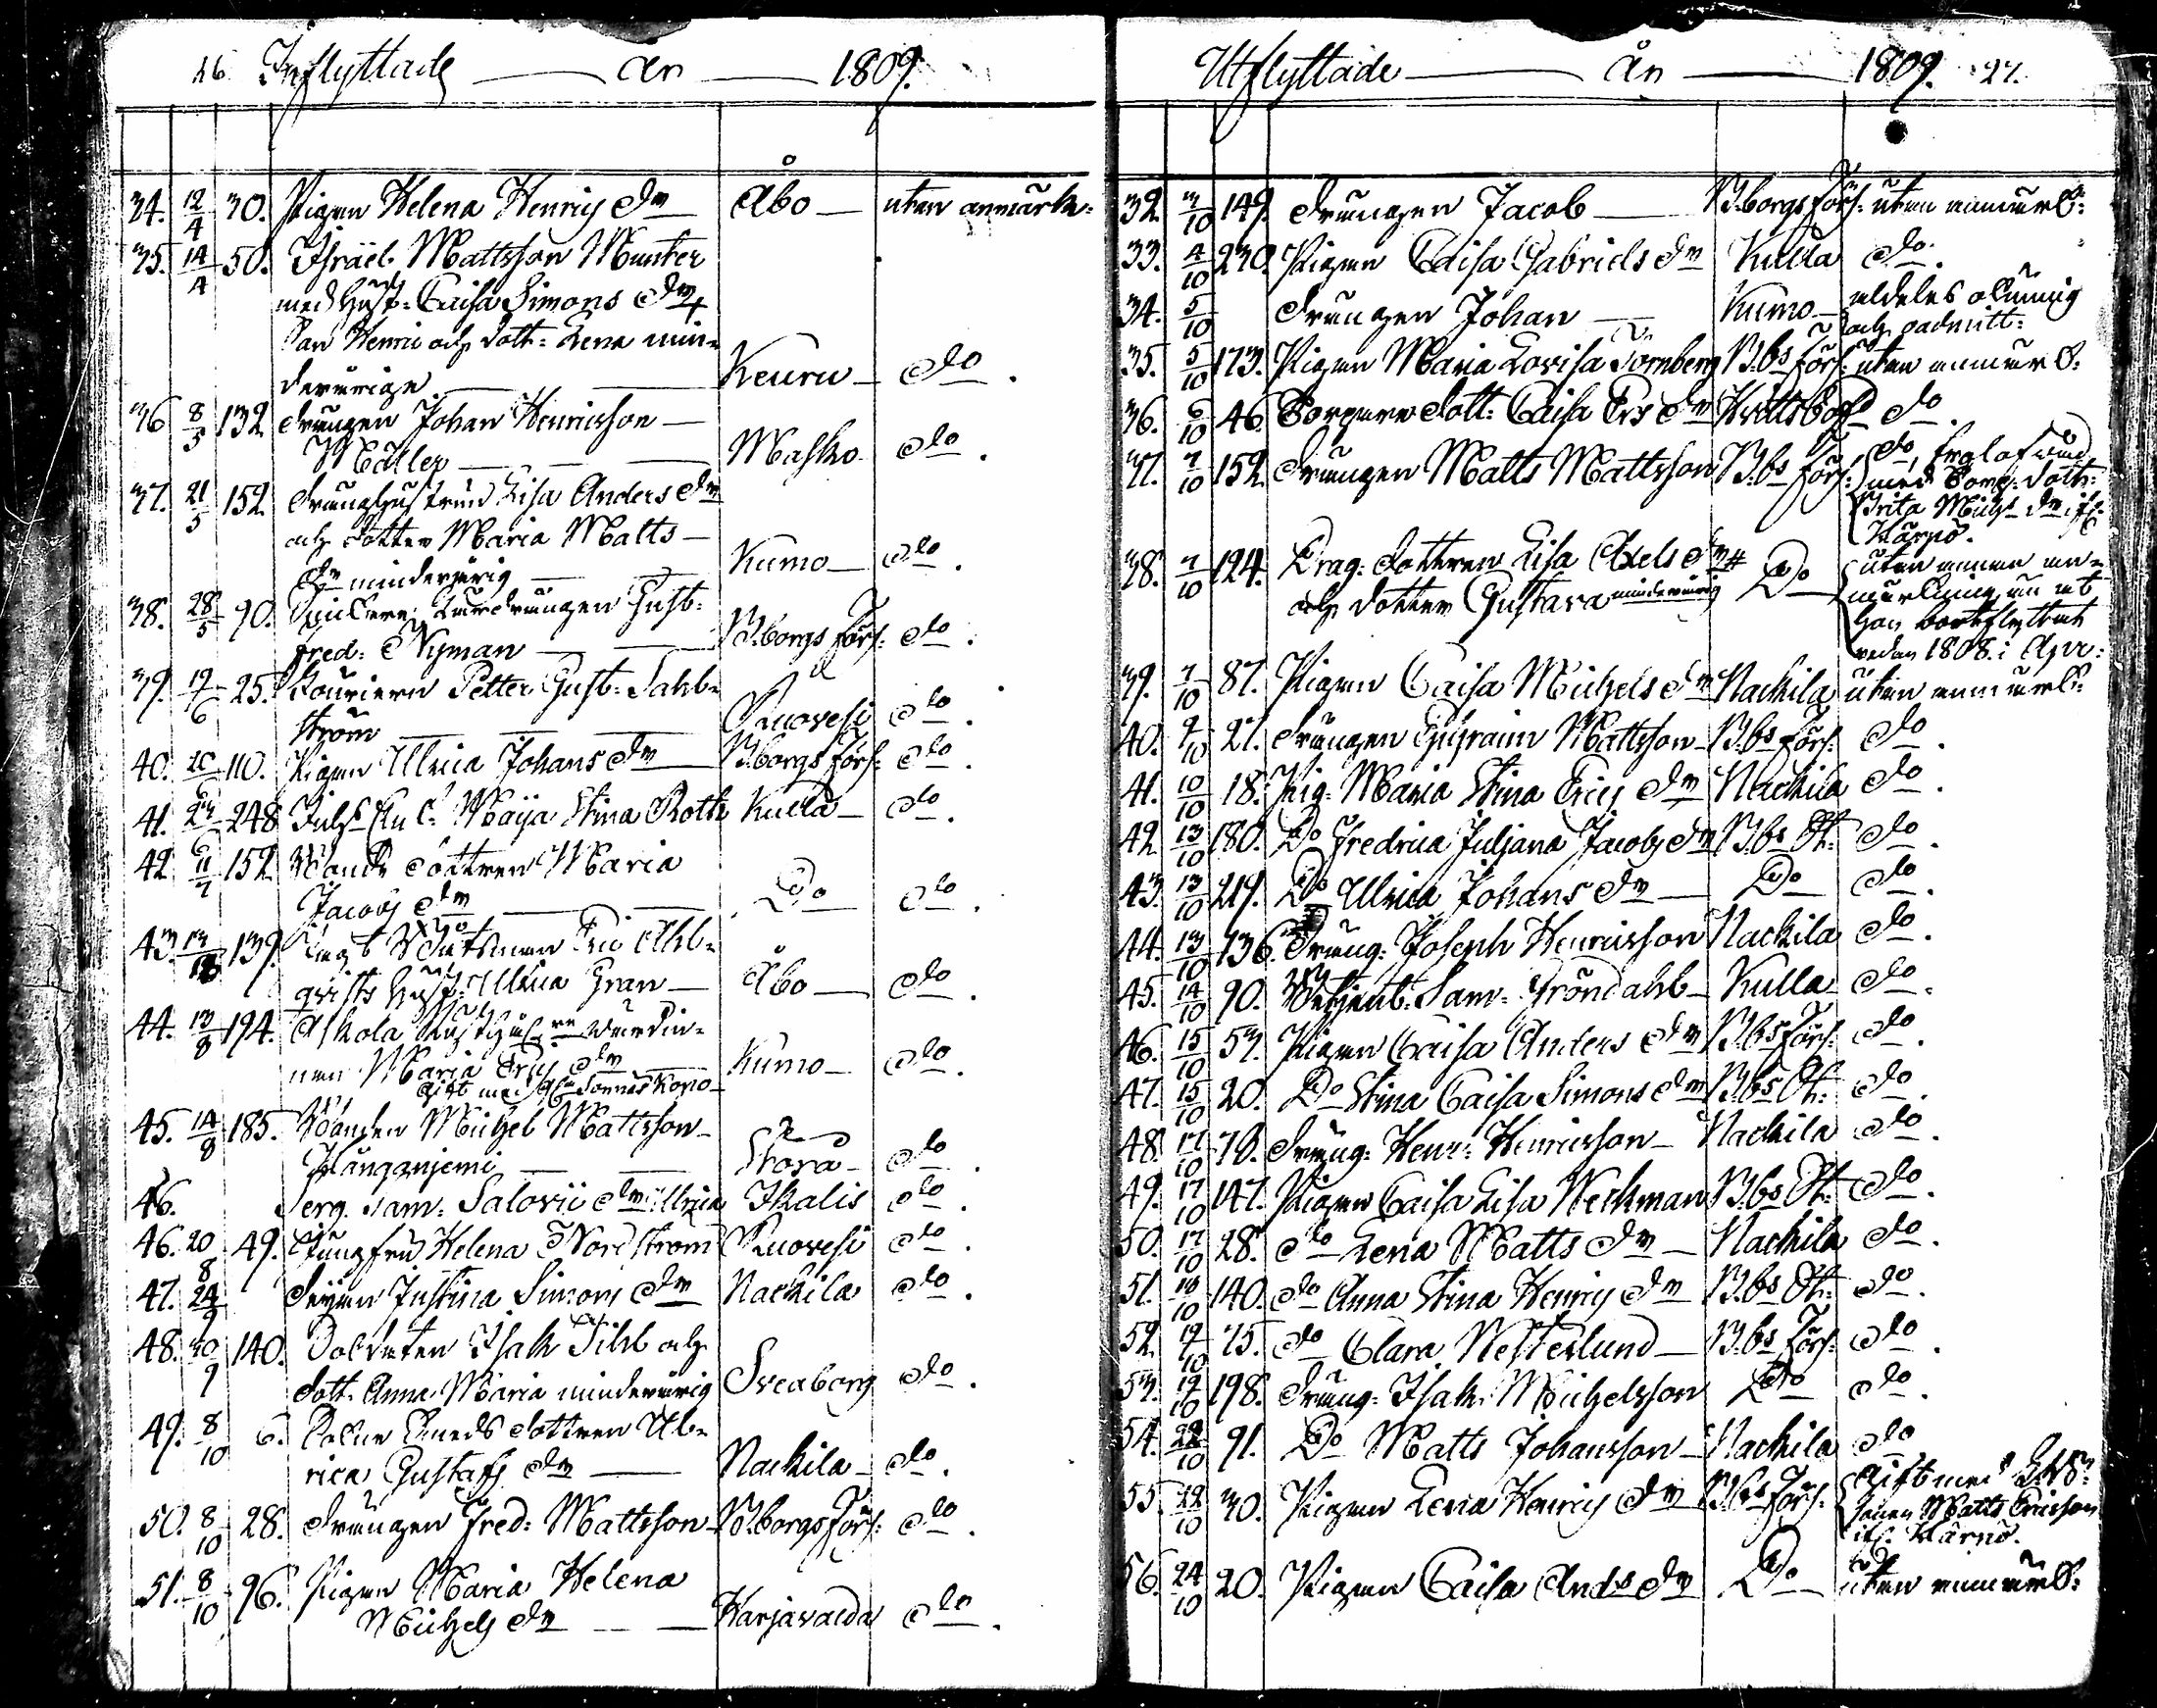 26. Inflyttade — År — 1809.
34. 12/4 30. Pigan Helena Henrics dr — Åbo — utan anmärkn:
35. 14/4 50. Israel Mattsson Munter
med Hust: Caisa Simons dr
Son Henric och dott: Lena min-
deråriga — Keuru — do.
36 8/5 132 Drängen Johan Henricsson —
Möller — Masko do.
37. 21/5 152. Dränghustrun Lisa Anders dr
och dotter Maria Matts —
dr minderårig — Kumo — do.
38. 28/5 90. Lärdrängen Gust:
Fred: Nyman — B:borgs förs: do.
39. 19/6 25. Petter Gust: Sahl-
ström — Ruovesi do.
40. 20/6 110. Pigan Ulrica Johans dr — B:borgs förs: do.
41. 24/6 248 Maija Stina Roth Kulla — do.
42 11/7 152. dottren Maria
Jacobs dr — Do — do.
43. 139. Båtsman Eric Ahl-
qvists Hust: Ulrica Gran — Åbo — do.
44. 13/8 194. Askola
nan Maria Erics dr — Kumo — do.
gift med Sonnäs Kopo —
45. 14/8 185. Bonden Michel Mattsson —
Kanganjemi — Stora — do.
46. Serg. Sam: Salovii dr Ulrica Ikalis do.
46. 20/8 49. Jungfru Helena Nordström Ruovesi do.
47. 24/9 Pigan Justina Simons dr Nackila do.
48. 30/9 140. Soldaten Isak Sihl och
dott: Anna Maria minderårig Sveaborg do.
49. 8/10 6. dottren Ul-
rica Gustafs dr — Nackila — do.
50. 8/10 28. Drängen Fred: Mattsson B:borgs förs: do.
51. 8/10 96. Pigan Maria Helena
Michels dr — Harjavalda do.
Utflyttade — År — 1809. 27.
32. 3/10 149. Drängen Jacob — B:borgs förs: utan anmärk:
33. 4/10 230. Pigan Caisa Gabriels dr Kulla do.
34. 5/10 Drängen Johan — Kumo — aldeles okunnig
och oadmitt:
35. 5/10 173. Pigan Maria Lovisa Törnberg B:bs förs: utan anmärk:
36. 6/10 46. Torpare dott: Caisa Ers dr do.
37. 7/10 152. Drängen Matts Mattsson B:bs förs: do, trolofvad
med Torp: dott:
Brita Mich: dr if:
Kärpö.
38. 7/10 124. Drag: dottren Lisa Axels dr
och dotter Gustava minderårig Do — utan annan an-
märkning än at
hon bortflyttat
redan 1808 i Apr:
39. 7/10 87. Pigan Caisa Michels dr Nackila utan anmärk:
40. 9/10 27. Drängen Ephraim Mattsson B:bs förs: do.
41. 10/10 18. Pig: Maria Stina Erics dr Nackila do.
42 13/10 180. Do Fredrica Juliana Jacobs dr B:bs St: do.
43. 13/10 219. Do Ullrica Johans dr — Do — do.
44. 13/10 136. Dräng: Joseph Henricsson Nackila do.
45. 14/10 90. Betjent: Sam: Gröndahl — Kulla do.
46. 15/10 57. Pigan Caisa Anders dr B:bs förs: do.
47. 15/10 20. Do Stina Caisa Simons dr B:bs St: do.
48. 17/10 Dräng: Henr: Henricsson — Nackila do.
49. 17/10 147. Pigan Caisa Lisa Weckman B:bs St: do.
50. 17/10 28. do Lena Matts dr — Nackila do.
51. 18/10 140. do Anna Stina Henrics dr B:bs St: do.
52. 19/10 75. do Clara Westerlund — B:bs förs: do.
53. 19/10 198. Dräng: Isak Michelsson Do do.
54. 22/10 91. Do Matts Johansson — Nackila do
55. 22/10 30. Pigan Lena Henrics dr B:bs förs: Gift med
Matts Ericsson
if: Kärpö.
56. 24/10 20. Pigan Caisa Ands dr Do — utan anmärk: